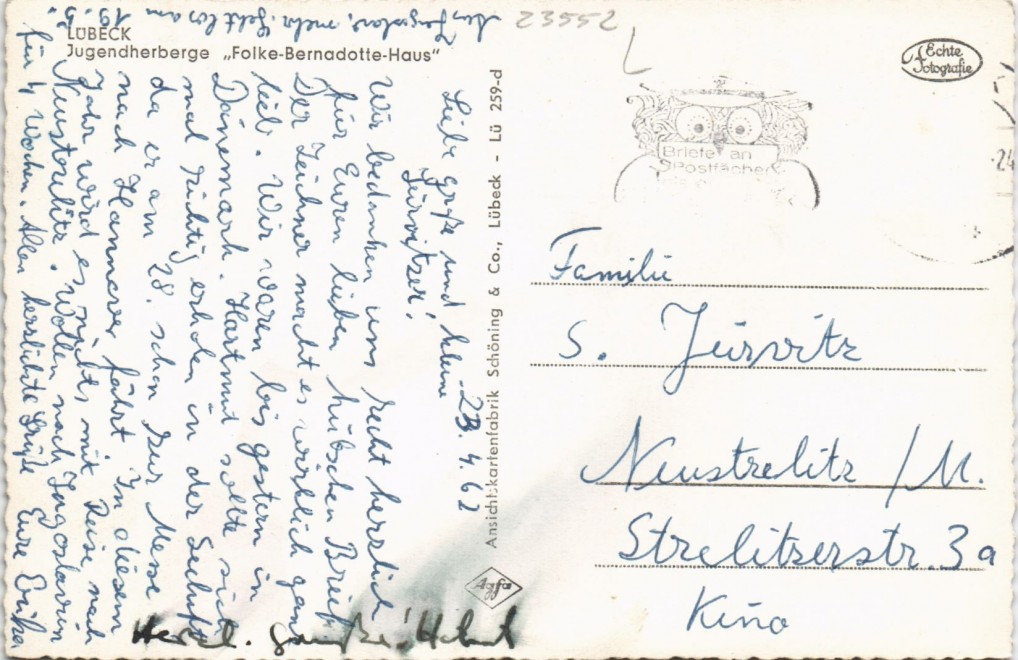 23552
LÜBECK
Jugendherberge „Folke-Bernadotte-Haus"
Echte
Fotografie
Briefe an
Postfächer
24
Ansichtskartenfabrik Schöning & Co., Lübeck - Lü 259-d
Agfa
23. 4. 62
Liebe große und kleine
Jürvitzer!
Wir bedanken uns recht herzlich
für Euren lieben hübschen Brief.
Der Zeichner macht es wirklich ganz
lieb. Wir waren bis gestern in
Dänemark. Hartmut sollte sich
mal richtig erholen in der Seeluft
da er am 28. schon zur Messe
nach Hannover fährt. In diesem
Jahr wird es nichts mit Reise nach
Neustrelitz. Wollen nach Jugoslavien
für 4 Wochen. Allen herzlichste Grüße Eure Erika
19. 5.
Herzl. Grüße!
Familie
S. Jürvitz
Neustrelitz / M.
Strelitzerstr. 3a
Kino